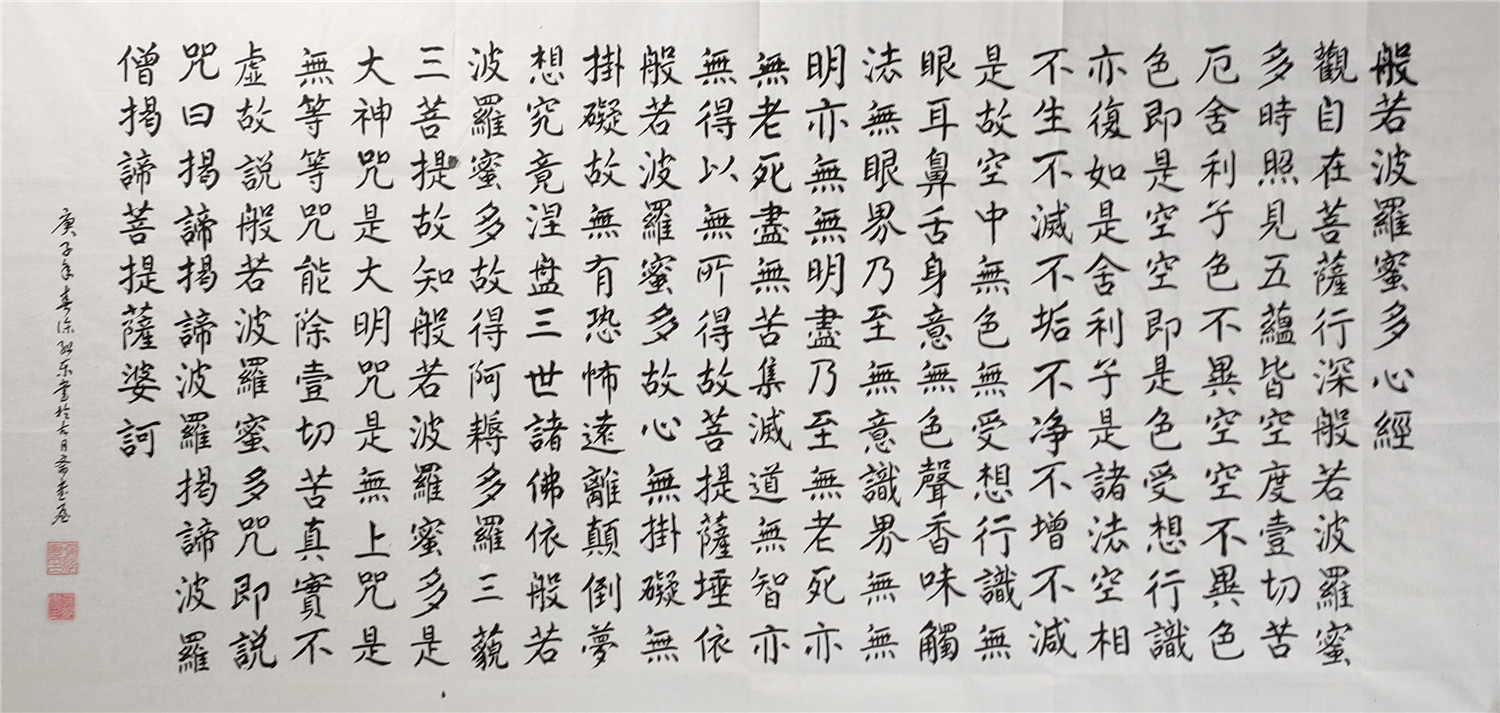 般若波羅蜜多心經
觀自在菩薩行深般若波羅蜜
多時照見五蘊皆空度壹切苦
厄舍利子色不異空空不異色
色即是空空即是色受想行識
亦復如是舍利子是諸法空相
不生不滅不垢不净不增不減
是故空中無色無受想行識無
眼耳鼻舌身意無色聲香味觸
法無眼界乃至無意識界無無
明亦無無明盡乃至無老死亦
無老死盡無苦集滅道無智亦
無得以無所得故菩提薩埵依
般若波羅蜜多故心無掛礙無
掛礙故無有恐怖遠離顛倒夢
想究竟涅盘三世諸佛依般若
波羅蜜多故得阿耨多羅三藐
三菩提故知般若波羅蜜多是
大神咒是大明咒是無上咒是
無等等咒能除壹切苦真實不
虛故説般若波羅蜜多咒即説
咒曰揭諦揭諦波羅揭諦波羅
僧揭諦菩提薩婆訶
庚子年春徐东書於古月齋